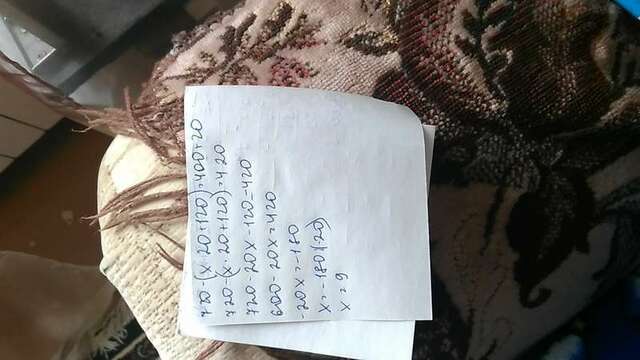 720-(x·20+120)=400+20
720-(x·20+120)=420
720-20x-120=420
600-20x=420
-20x=-180
x=-180:(-20)
x=9